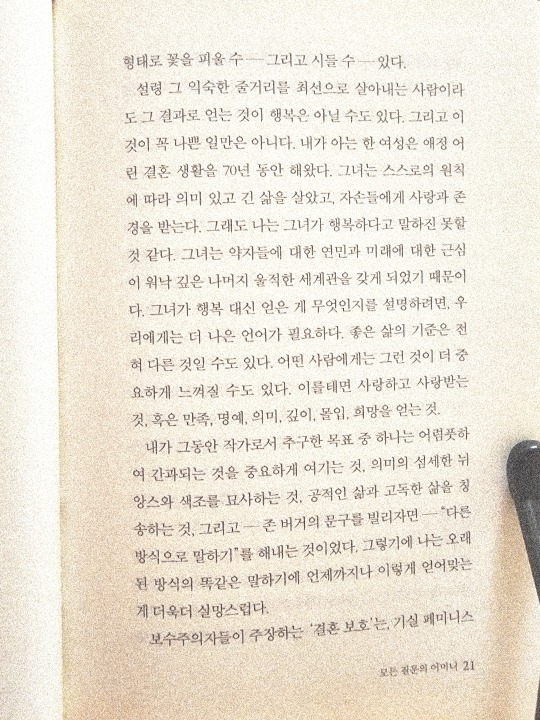 형태로 꽃을 피울 수 — 그리고 시들 수 — 있다.
설령 그 익숙한 줄거리를 최선으로 살아내는 사람이라
도 그 결과로 얻는 것이 행복은 아닐 수도 있다. 그리고 이
것이 꼭 나쁜 일만은 아니다. 내가 아는 한 여성은 애정 어
린 결혼 생활을 70년 동안 해왔다. 그녀는 스스로의 원칙
에 따라 의미 있고 긴 삶을 살았고, 자손들에게 사랑과 존
경을 받는다. 그래도 나는 그녀가 행복하다고 말하진 못할
것 같다. 그녀는 약자들에 대한 연민과 미래에 대한 근심
이 워낙 깊은 나머지 울적한 세계관을 갖게 되었기 때문이
다. 그녀가 행복 대신 얻은 게 무엇인지를 설명하려면, 우
리에게는 더 나은 언어가 필요하다. 좋은 삶의 기준은 전
혀 다른 것일 수도 있다. 어떤 사람에게는 그런 것이 더 중
요하게 느껴질 수도 있다. 이를테면 사랑하고 사랑받는
것, 혹은 만족, 명예, 의미, 깊이, 몰입, 희망을 얻는 것.
내가 그동안 작가로서 추구한 목표 중 하나는 어렴풋하
여 간과되는 것을 중요하게 여기는 것, 의미의 섬세한 뉘
앙스와 색조를 묘사하는 것, 공적인 삶과 고독한 삶을 칭
송하는 것, 그리고 — 존 버거의 문구를 빌리자면 — “다른
방식으로 말하기”를 해내는 것이었다. 그렇기에 나는 오래
된 방식의 똑같은 말하기에 언제까지나 이렇게 얻어맞는
게 더욱더 실망스럽다.
보수주의자들이 주장하는 ‘결혼 보호’는, 기실 페미니스
모든 질문의 어머니 21